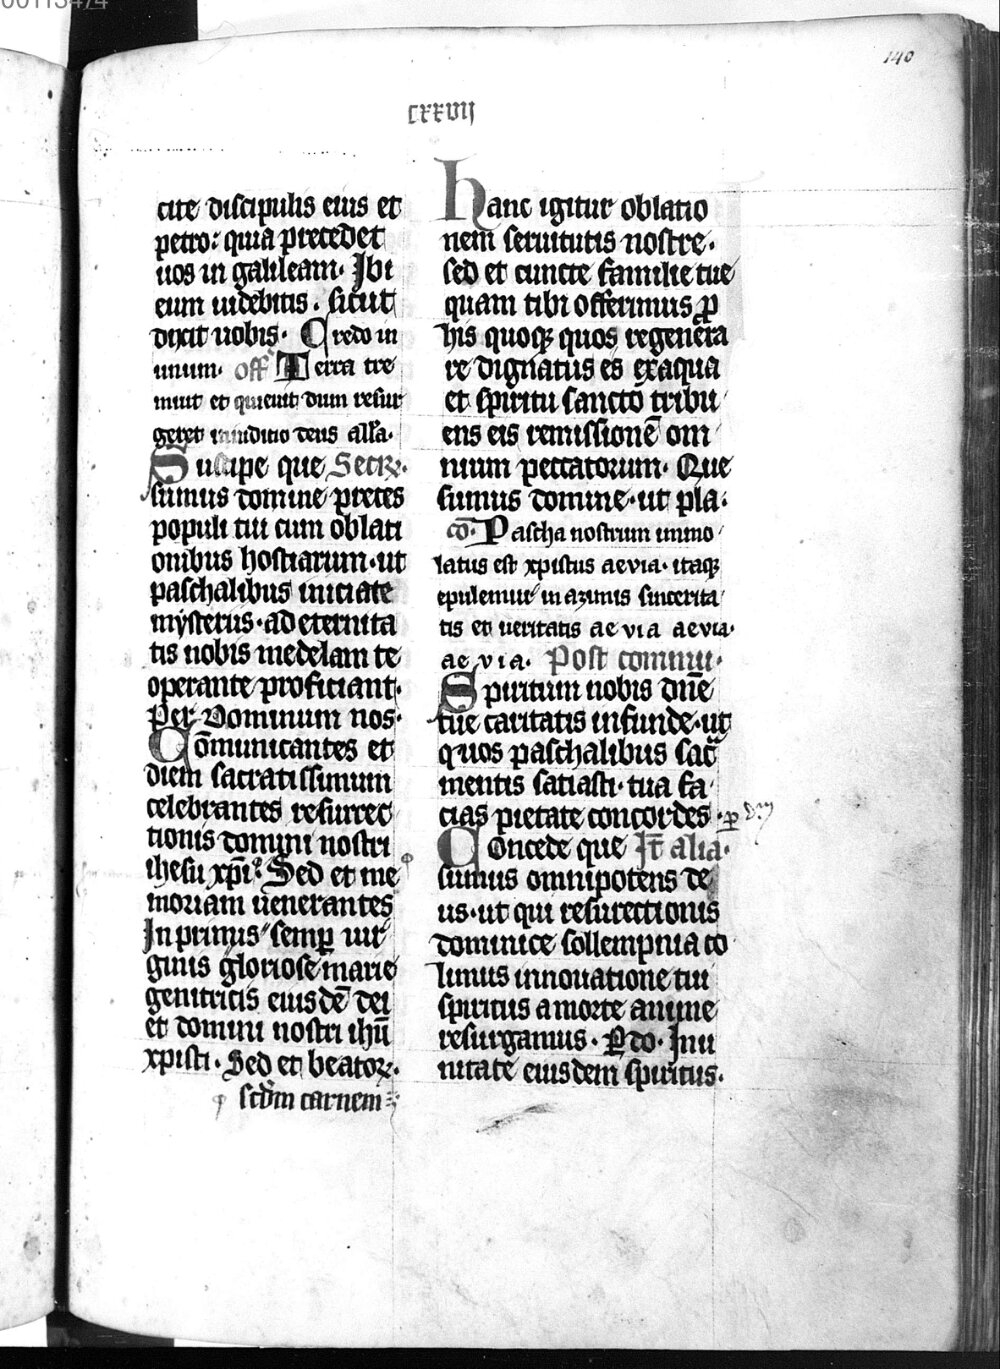 140
cxxvij
cite discipulis eius et
petro: quia precedet
uos in galileam. Ibi
eum uidebitis. sicut
dixit uobis. Credo in
unum. off Terra tre
muit et quieuit dum resur
geret in iuditio deus alla.
Suscipe que Secrꝫ.
sumus domine preces
populi tui cum oblati
onibus hostiarum. ut
paschalibus iniciate
mysteriis. ad eternita
tis nobis medelam te
operante proficiant.
Per Dominum nos.
Cōmunicantes et
diem sacratissimum
celebrantes resurrec
tionis domini nostri
ihesu xp̄i. Sed et me
moriam uenerantes
In primis semꝑ uir
ginis gloriose marie
genitricis eiusdē dei
et domini nostri ihū
xpisti. Sed et beatoꝝ.
scdm carnem
hanc igitur oblatio
nem seruitutis nostre.
sed et cuncte familie tue
quam tibi offerimus ꝓ
his quoqꝫ quos regenera
re dignatus es ex aqua
et spiritu sancto tribu
ens eis remissionē om
nium peccatorum. Que
sumus domine. ut pla.
cō. Pascha nostrum immo
latus est xpistus aevia. itaqꝫ
epulemur in azimis sincerita
tis et ueritatis aevia aevia.
aevia. Post commu.
Spiritum nobis dn̄e
tue caritatis infunde. ut
quos paschalibus sac̄
mentis satiasti. tua fa
cias pietate concordes. ꝑ
Concede que It̄ alia.
sumus omnipotens de
us. ut qui resurectionis
dominice sollempnia co
limus innouatione tui
spiritus a morte anime
resurgamus. P do. In u
nitate eiusdem spiritus.